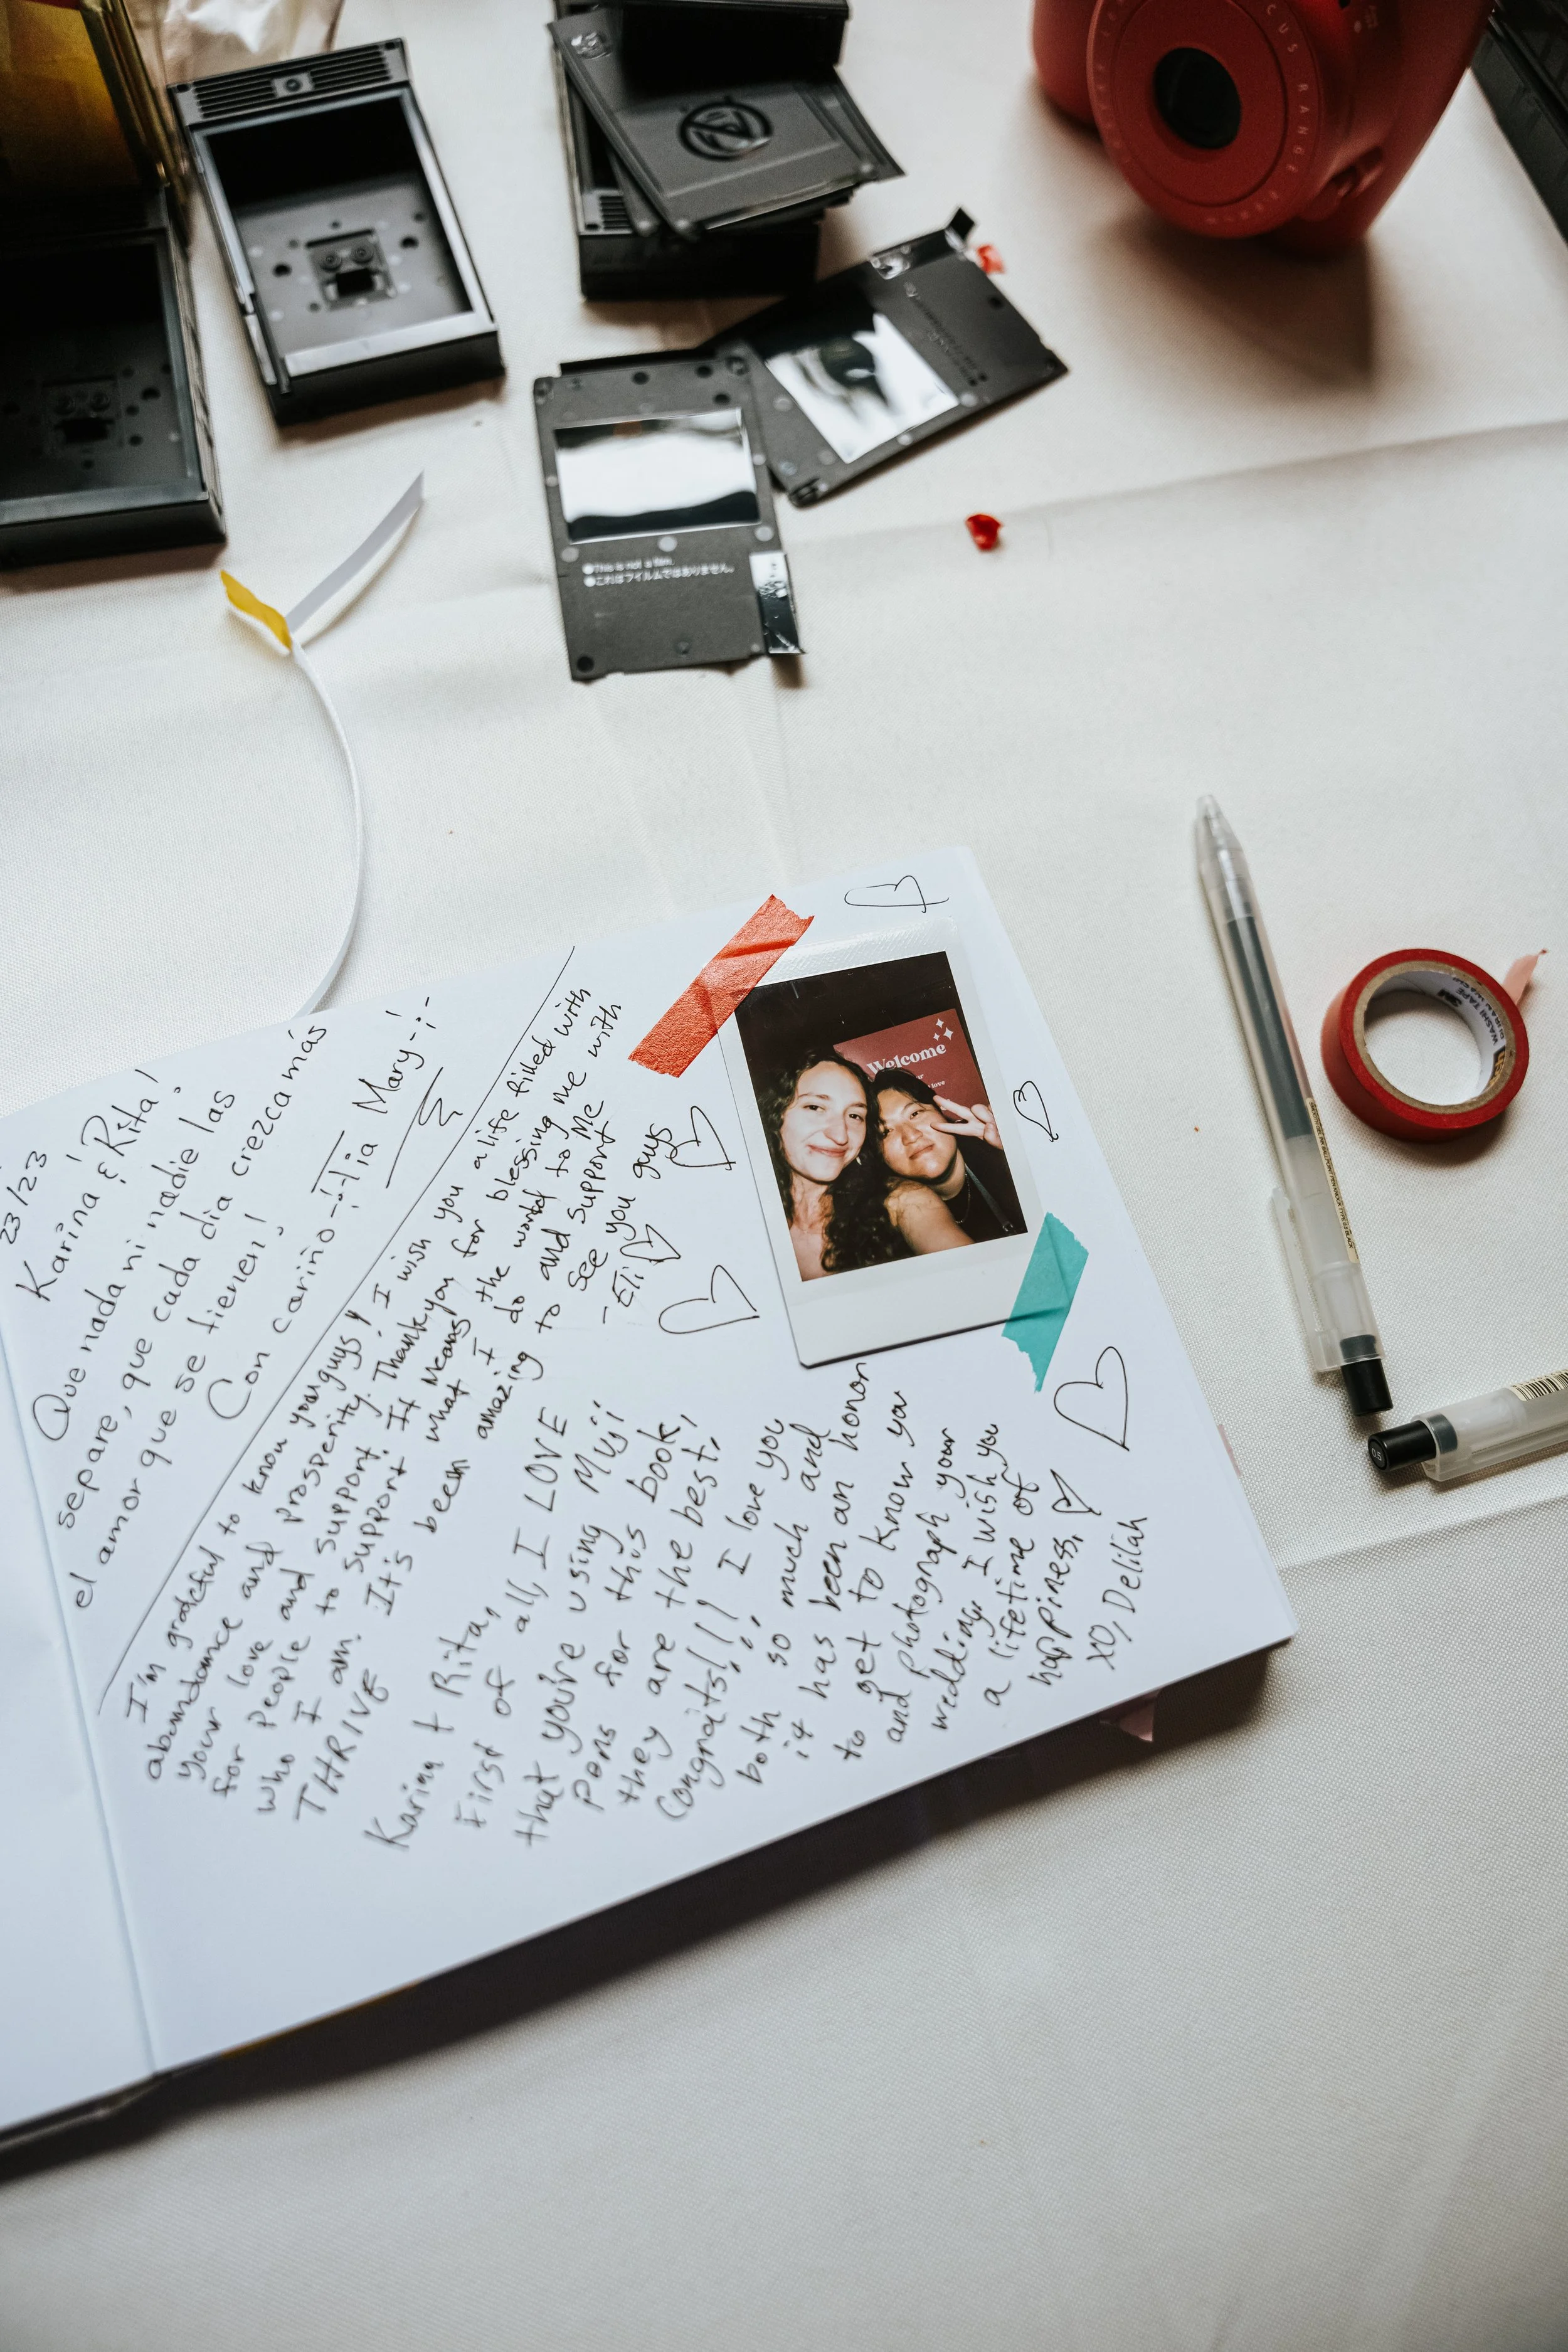 FOCUS RANGE
This is not a film.
これはフイルムではありません。
23/23
Karina & Rita!
Que nada ni nadie las
separe, que cada día crezca más
el amor que se tienen!
Con cariño -Tia Mary-
I'm grateful to know you guys! I wish you a life filled with
abundance and prosperity. Thank you for blessing me with
your love and support. It means the world to Me
for People to support what I do and support Me with
who I am. It's been amazing to see you guys
THRIVE
-Eli
Karina + Rita,
First of all, I LOVE
that you're using Muji
pens for this book,
they are the best!
Congrats!!! I love you
both so much and
it has been an honor
to get to know you
and photograph your
wedding. I wish you
a lifetime of
happiness,
XO, Delilah
Welcome
love
WASHI TAPE
3M
05